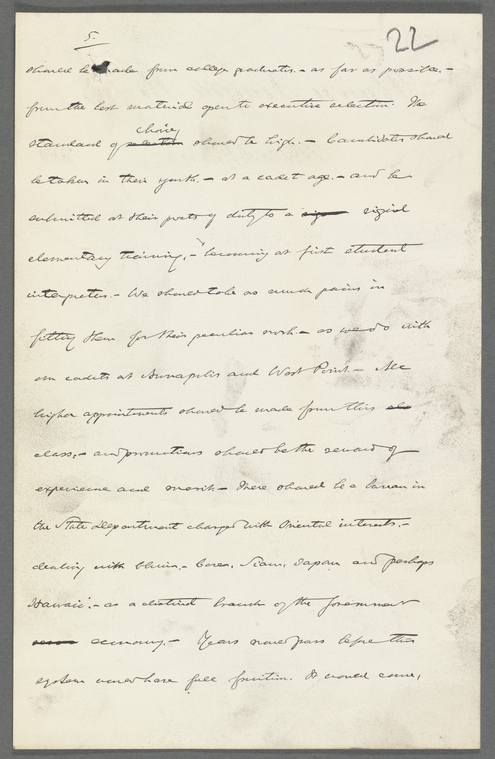 5.
22
should be made from college graduates. - as far as possible. -
from the best material open to executive selection. The
choice
standard of selection should be high. - Candidates should
be taken in their youth. - at a cadet age. - and be
submitted at their posts of duty to a rigid
elementary training, - becoming at first student
interpreters. - We should take as much pains in
fitting them for their peculiar work. - as we do with
our cadets at Annapolis and West Point. - All
higher appointments should be made from this
class, - and promotions should be the reward of
experience and merit. - There should be a bureau in
the State Department charged with Oriental interests. -
dealing with China. - Corea, Siam, Japan and perhaps
Hawaii. - as a distinct branch of the Government
economy. - Years would pass before this
system would have full fruition. It would come,